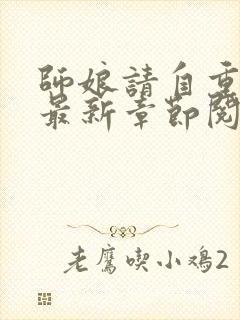 師娘請自重
最新章節閱
老鷹喫小鸡2